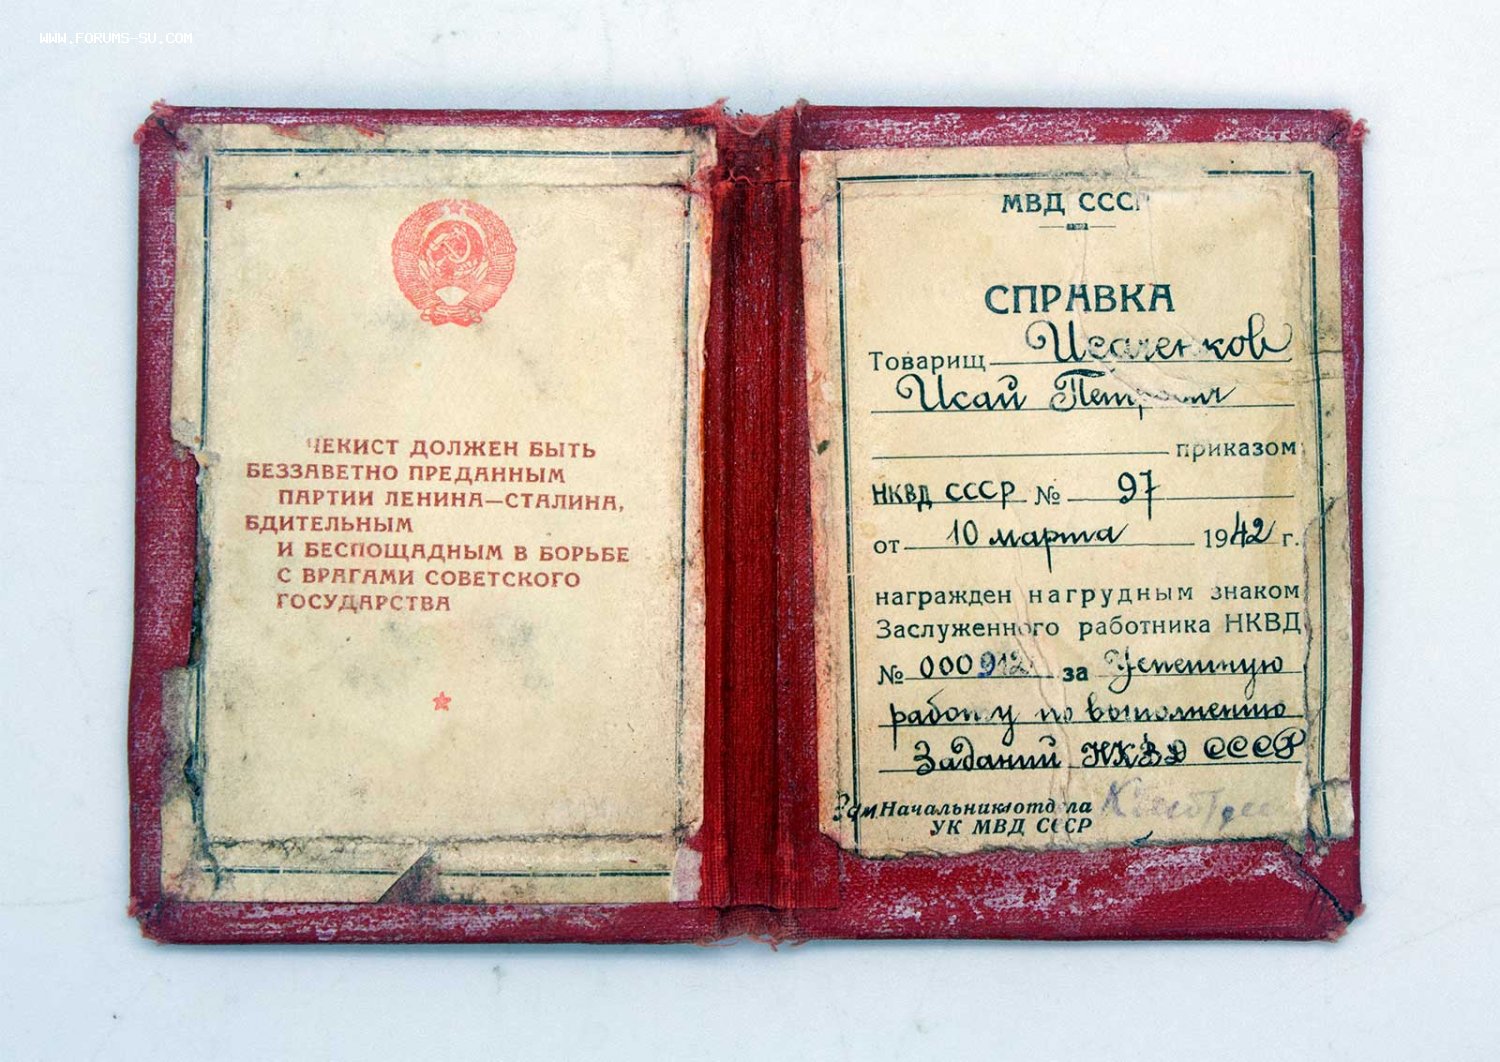 WWW.FORUMS-SU.COM
ЧЕКИСТ ДОЛЖЕН БЫТЬ
БЕЗЗАВЕТНО ПРЕДАННЫМ
ПАРТИИ ЛЕНИНА—СТАЛИНА,
БДИТЕЛЬНЫМ
И БЕСПОЩАДНЫМ В БОРЬБЕ
С ВРАГАМИ СОВЕТСКОГО
ГОСУДАРСТВА
МВД СССР
СПРАВКА
Товарищ Исаченков
Исай Петрович
приказом
НКВД СССР № 97
от 10 марта 1942 г.
награжден нагрудным знаком
Заслуженного работника НКВД
№ 000912 за Успешную
работу по выполнению
Заданий НКВД СССР
Зам Начальник отдела
УК МВД СССР